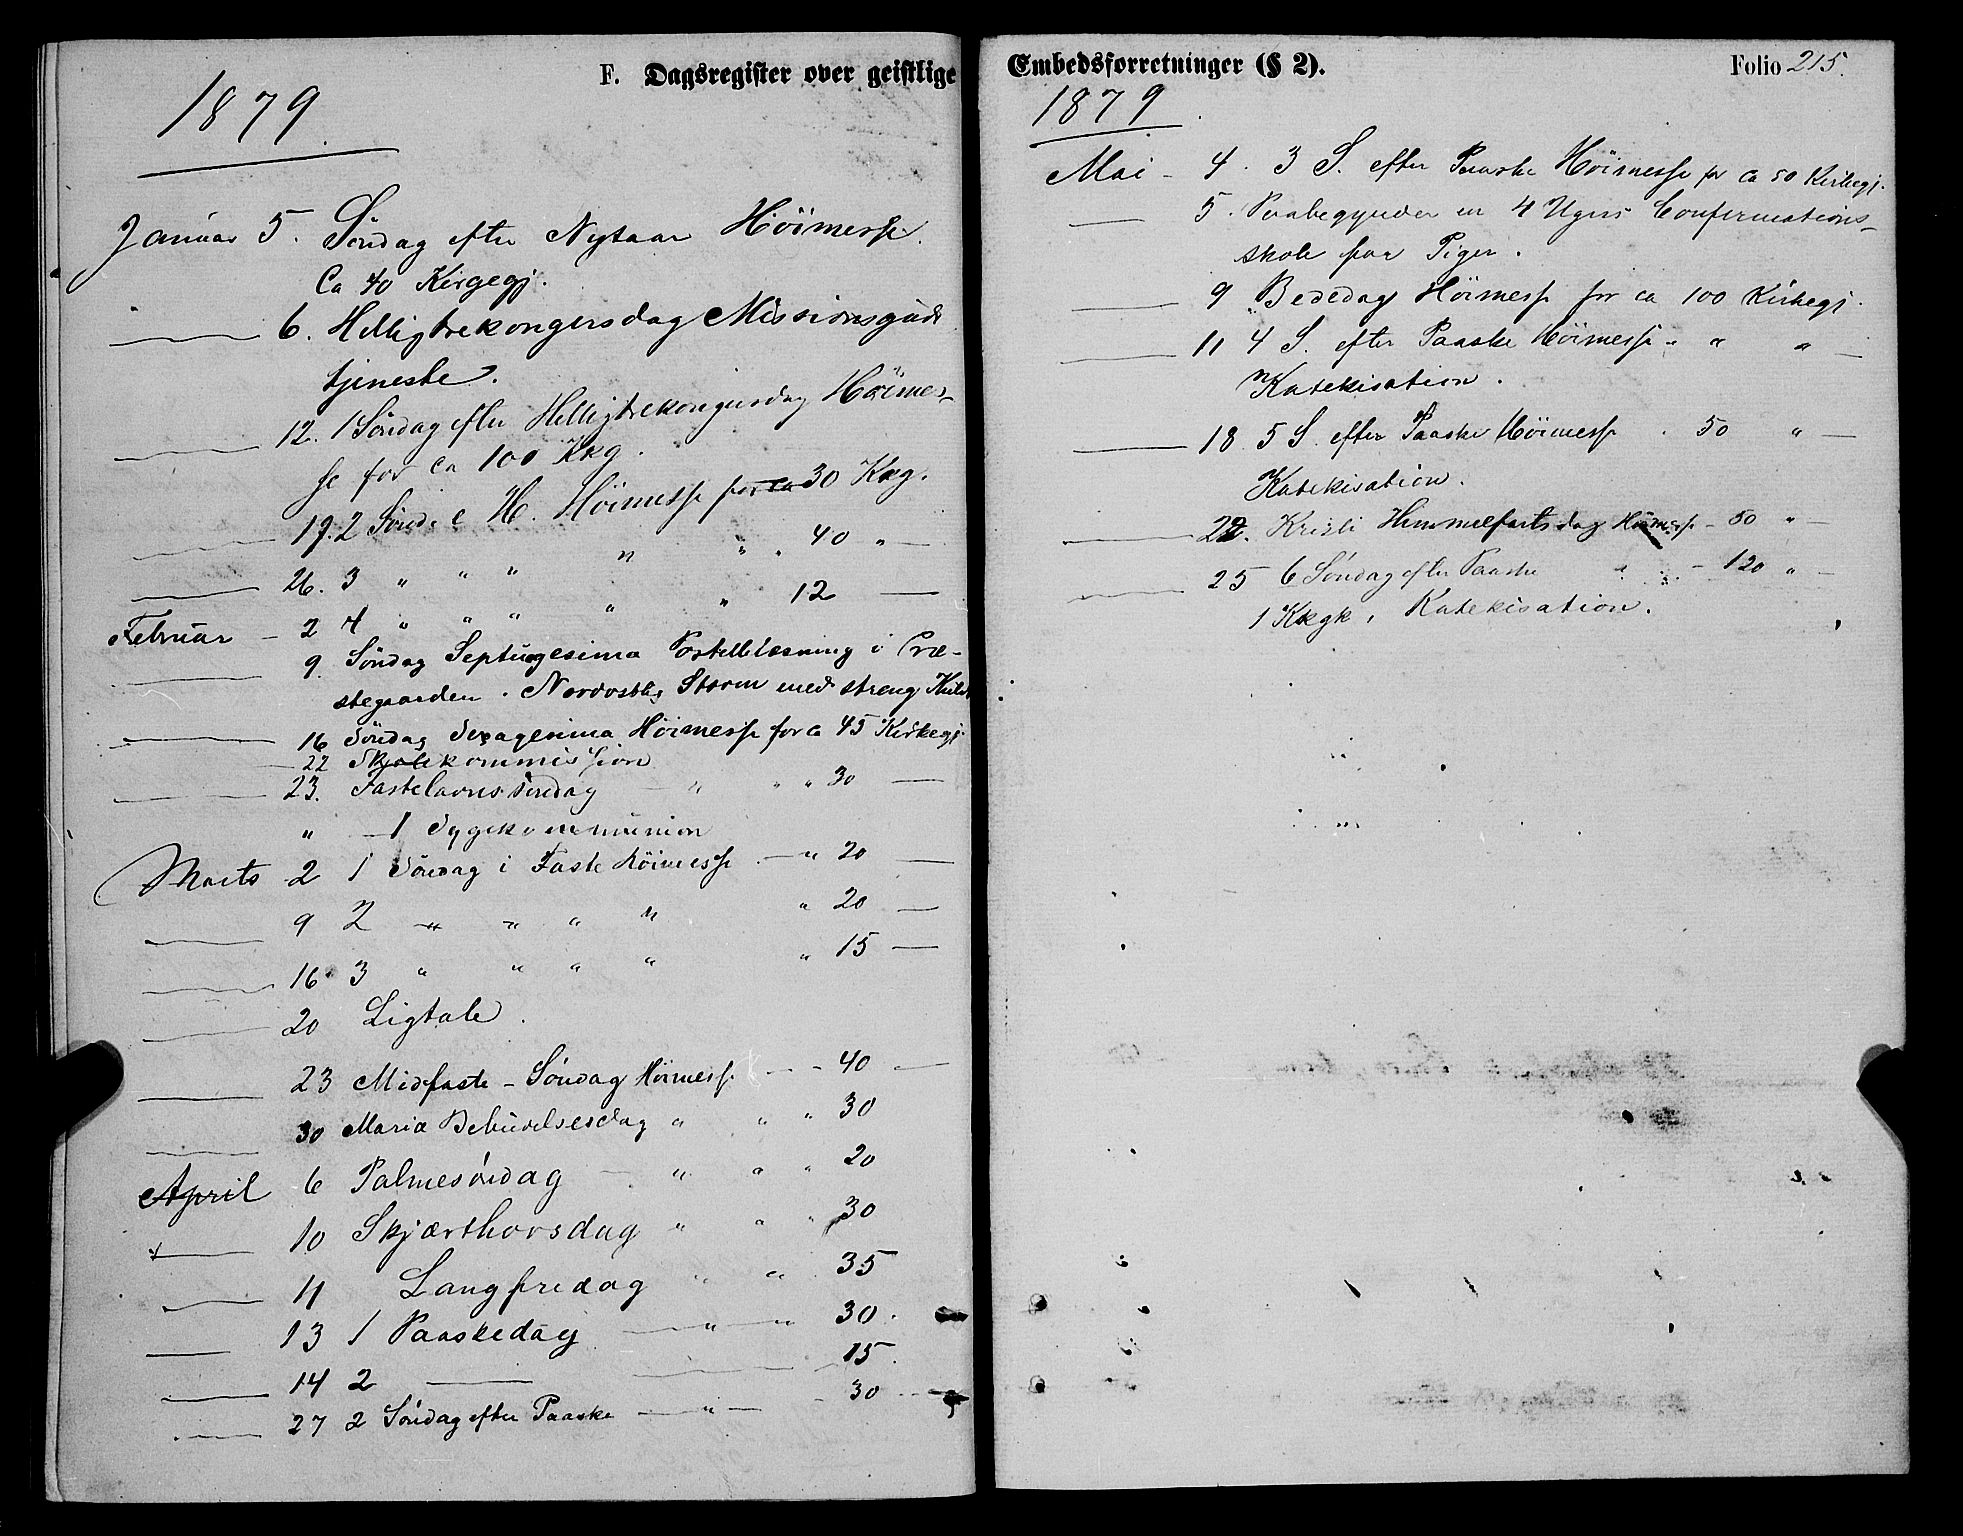 F. Dagsregister over geistlige
1879
Januar 5. Söndag efter Nytaar Höimesse.
Ca 40 Kirgegj.
— 6. Helligtrekongersdag Missionsguds
tjeneste.
— 12. 1 Söndag efter Helligtrekongersdag Höimes-
se for ca 100 Kkg.
— 19. 2 Sönd. e H. Höimesse for ca 30 Kkg.
— 26. 3 " " " " " . 40 " —
Februar — 2 4 " " " " " 12 —
— 9. Söndag Septuagesima Postillæsning i Præ-
stegaarden. Nordostlig Storm med streng Kulde
— 16 Söndag Sexagesima Höimesse for ca 45 Kirkegj.
— 22 Skolekommission
— 23. Fastelavnssöndag — " " " 30 —
" — 1 Sygekommunion
Marts 2 1 Söndag i Faste Höimesse — " 20 —
— 9 2 " " " " " 20 —
— 16 3 " " " " " 15 —
— 20 Ligtale.
— 23 Midfaste - Söndag Höimesse — - 40 —
— 30 Maria Bebudelsesdag " " " 30
April 6 Palmesöndag — " " " 20
— 10 Skjærthorsdag " " " 30
— 11 Langfredag " " 35
— 13 1 Paaskedag — " — " 30.
— 14 2 — — 15.
— 27 2 Söndag efter Paaske — " — - 30
Embedsforretninger (§ 2).
Folio 215.
1879
Mai - 4. 3 S. efter Paaske Höimesse for ca 50 Kirkegj.
— 5. Paabegynder en 4 Ugers Confirmations-
skole for Piger.
— 9 Bededag Höimesse for ca 100 Kirkegj.
— 11 4 S. efter Paaske Höimesse " " " —
Katekisation.
— 18 5 S. efter Paaske Höimesse . 50 " —
Katekisation.
— 22. Kristi Himmelfartsdag Höimesse - 50 " —
— 25 6 Söndag efter Paaske " " - 120 " —
1 Kkgk, Katekisation.